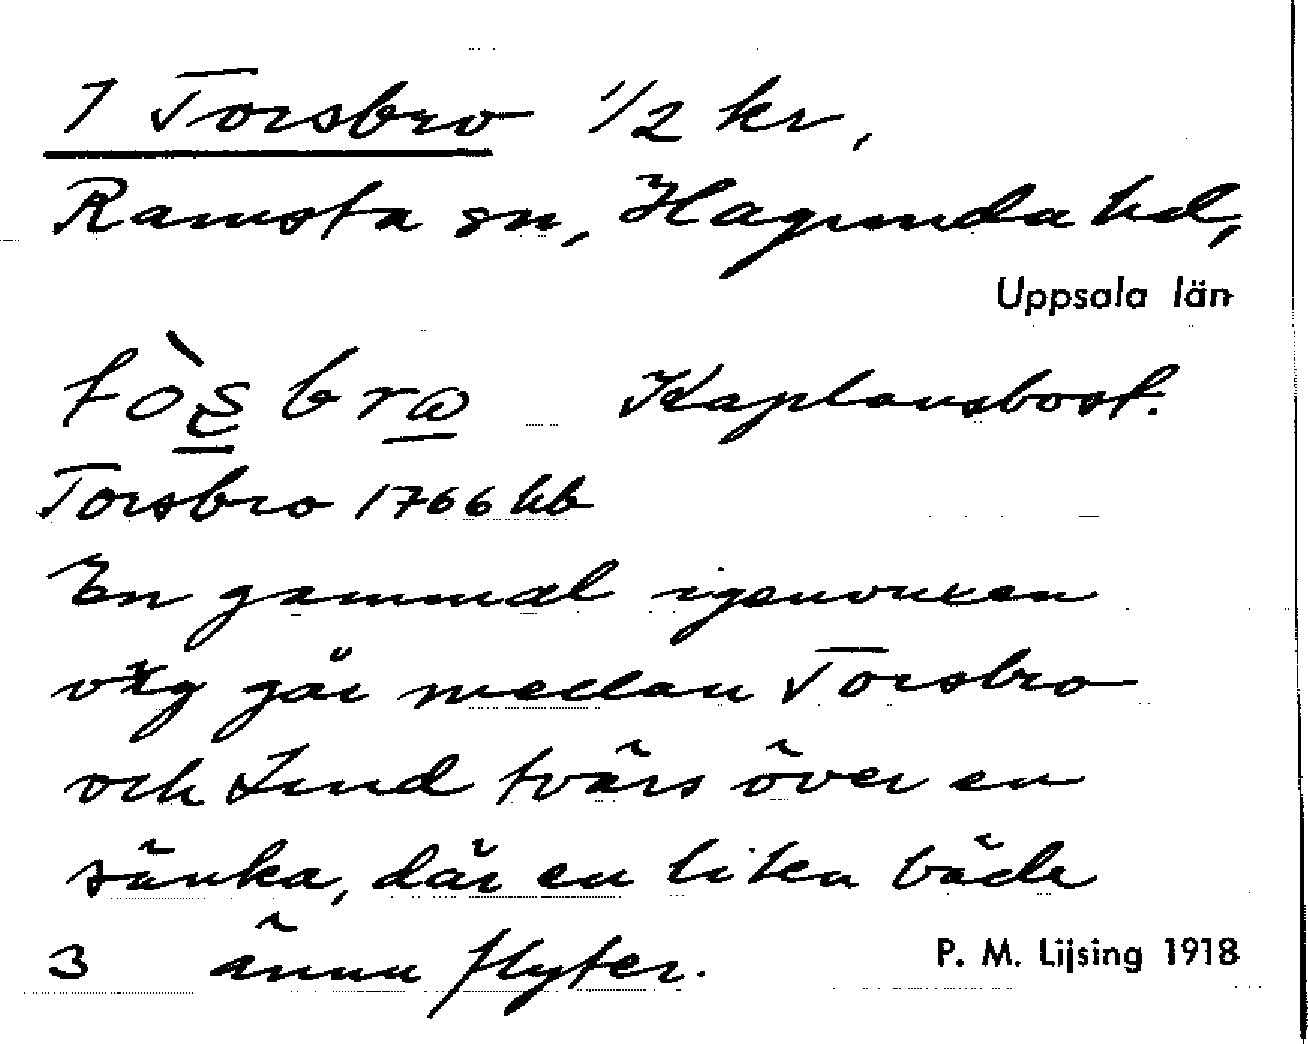 1 Torsbro 1/2 kr,
Ramsta sn, Hagunda hd,
Uppsala län
tòs̱bro̱ Kaplansbost.
Torsbro 1766 hb
En gammal igenvuxen
väg går mellan Torsbro
och Lund tvärs över en
sänka, där en liten bäck
3 ännu flyter.
P. M. Lijsing 1918